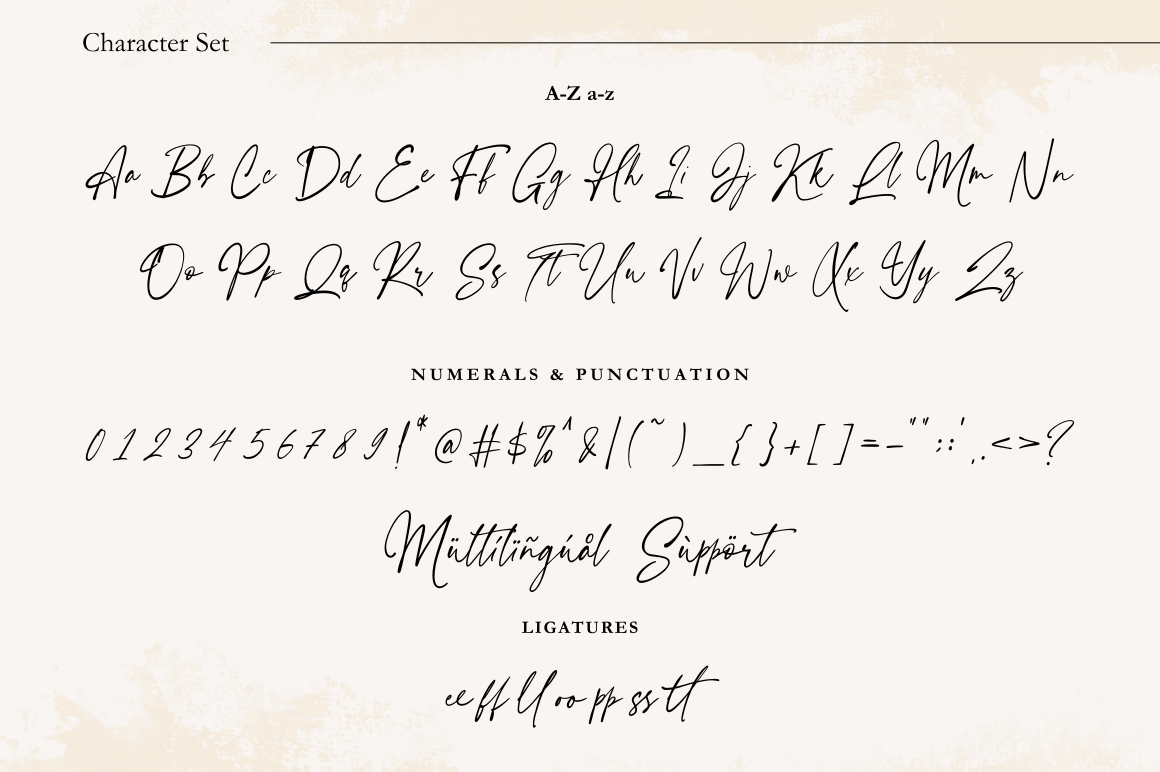 Character Set
A-Z a-z
Aa Bb Cc Dd Ee Ff Gg Hh Ii Jj Kk Ll Mm Nn
Oo Pp Qq Rr Ss Tt Uu Vv Ww Xx Yy Zz
NUMERALS & PUNCTUATION
0 1 2 3 4 5 6 7 8 9 ! * @ # $ % ^ & | ( ~ ) _ { } + [ ] = - " " ; : ' , . < > ?
Müttílïñgúål Sùppört
LIGATURES
ee ff ll oo pp ss tt